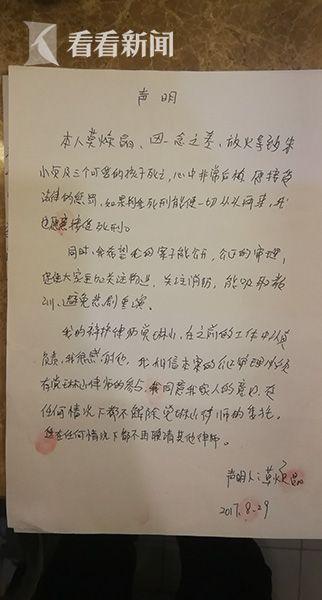 看看新闻
声明
本人莫焕晶、因一念之差、放火导致朱
小贞及三个可爱的孩子死亡,心中非常后悔 愿接受
法律的惩罚。如果判我死刑能使一切从头再来,我
也愿意接受死刑。
同时、我希望我的案子能公开,公正的审理,
促使大家更加关注物业,关注消防,能吸取教
训、避免悲剧重演。
我的辩护律师党琳山,在之前的工作中认真
负责,我很感谢他,我相信本案的公正审理必须
有党琳山律师的参与,我同意我家人的意见,在
任何情况下都不解除党琳山律师的委托。
在任何情况下都不再聘请其他律师。
声明人:莫焕晶
2017.8.29